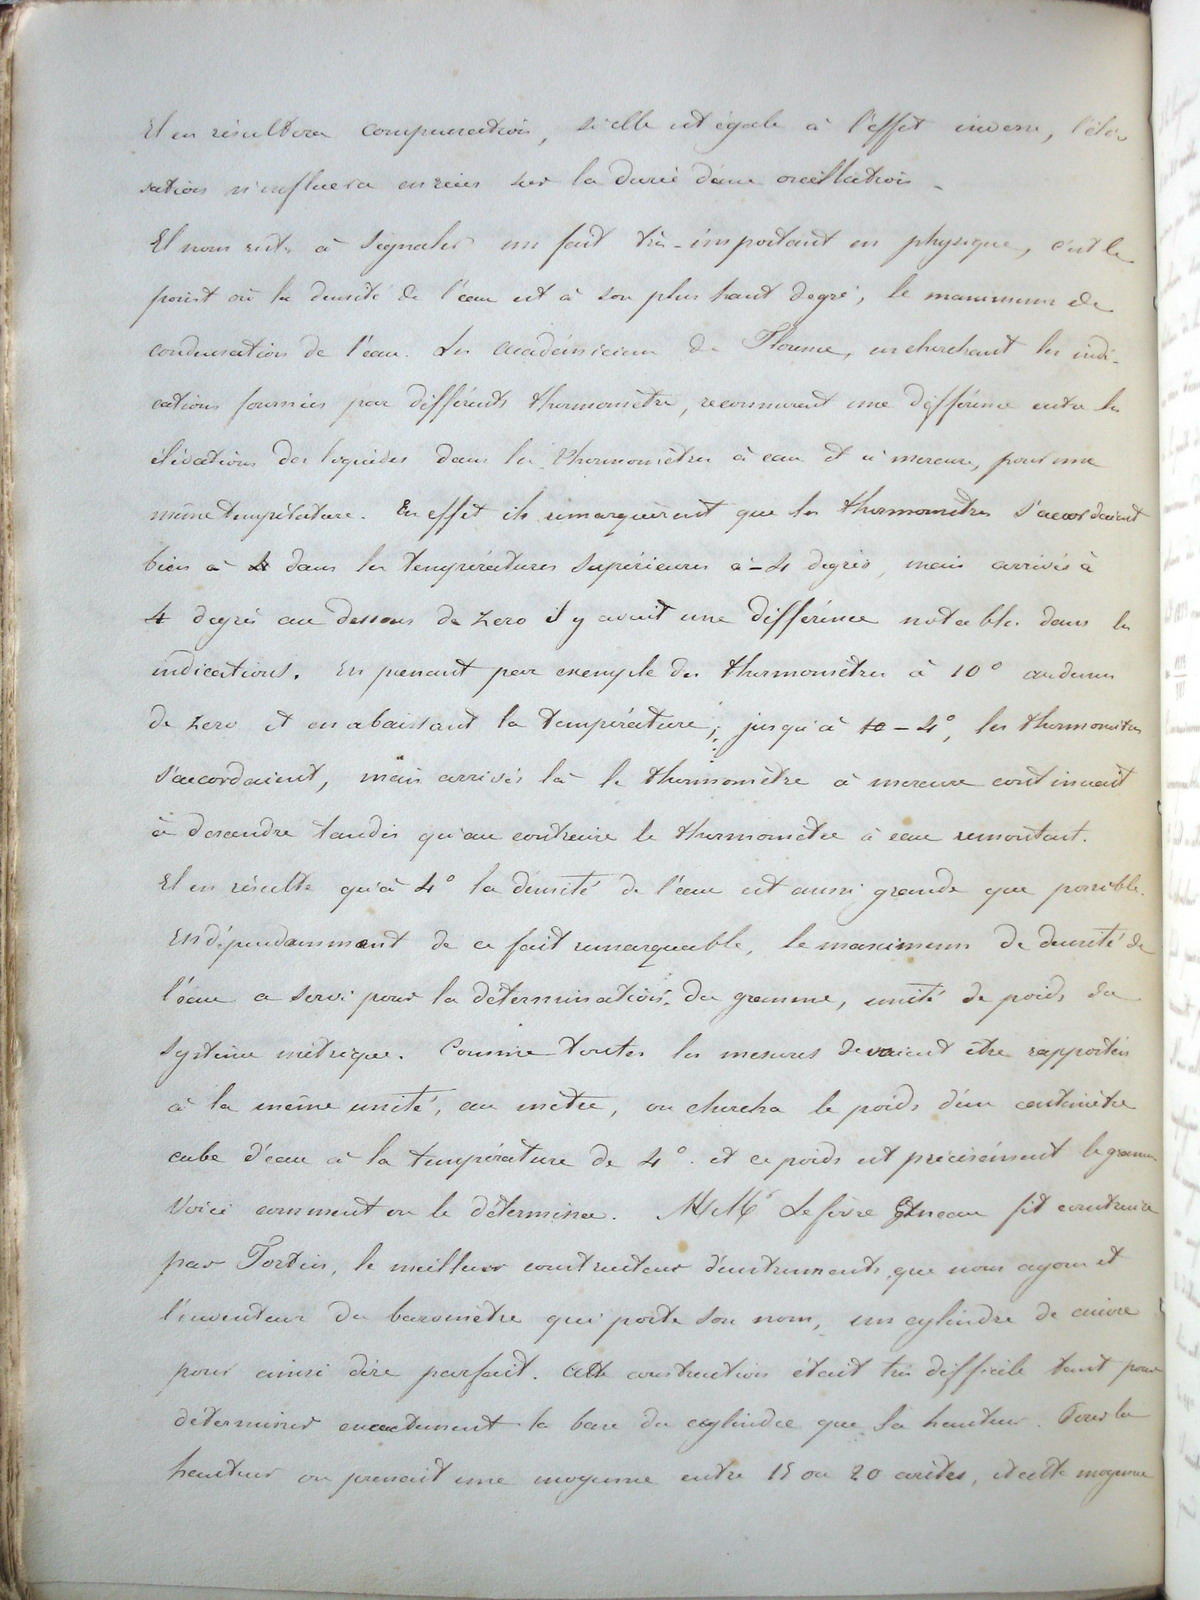 Il en résultera compensation, si elle est égale à l'effet inverse, l'élé
vation n'influera en rien sur la durée d'une oscillation.
Il nous reste à signaler un fait très-important en physique, c'est le
point où la densité de l'eau est à son plus haut degré, le maximum de
condensation de l'eau. Les académiciens de Florence, en cherchant les indi-
cations fournies par différents thermomètres, reconnurent une différence entre les
élévations des liquides dans les thermomètres à eau et à mercure, pour une
même température. En effet ils remarquèrent que les thermomètres s'accordaient
bien à 4 dans les températures supérieures à -4 degrés, mais arrivés à
4 degrés au dessous de zero il y avait une différence notable dans les
indications. En prenant par exemple des thermomètres à 10° au dessus
de zero et en abaissant la température, jusqu'à 10 - 4°, les thermomètres
s'accordaient, mais arrivés là le thermomètre à mercure continuait
à descendre tandis qu'au contraire le thermomètre à eau remontait.
Il en résulte qu'à 4° la densité de l'eau est aussi grande que possible.
Indépendamment de ce fait remarquable, le maximum de densité de
l'eau a servi pour la détermination du gramme, unité de poids du
système métrique. Comme toutes les mesures devaient être rapportées
à la même unité, au mètre, on chercha le poids d'un centimètre
cube d'eau à la température de 4°. et ce poids est précisément le gramme
Voici comment on le détermina. Lefèvre Gineau fit construire
par Fortin, le meilleur constructeur d'instruments que nous ayons et
l'inventeur du baromètre qui porte son nom, un cylindre de cuivre
pour ainsi dire parfait. Cette construction était très difficile tant pour
déterminer exactement la base du cylindre que sa hauteur. Pour la
hauteur on prenait une moyenne entre 15 ou 20 arêtes, et cette moyenne